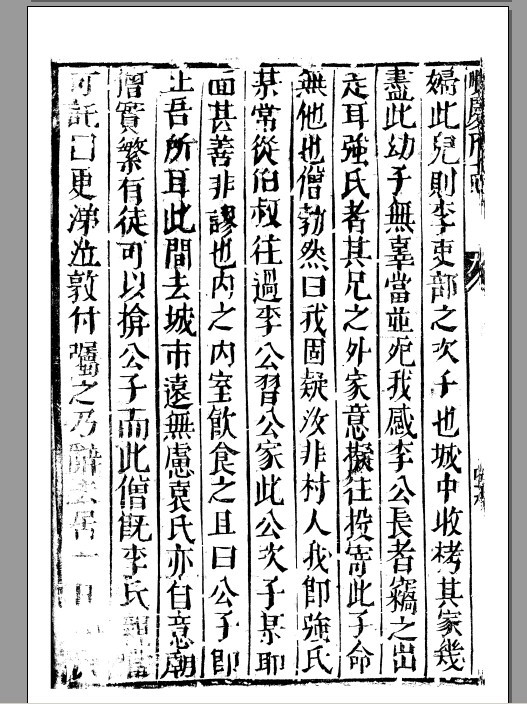 婦此兒則李吏部之次子也城中收栲其家幾
盡此幼子無辜當並死我感李公長者竊之出
走耳強氏者其兄之外家意擬往投寄此子命
無他也僧勃然曰我固疑汝非村人我卽強氏
某常從伯叔往過李公習公家此公次子某耶
面甚善非謬也内之内室飲食之且曰公子卽
止吾所耳此間去城市遠無慮袁氏亦自意朝
僧實繁有徒可以揜公子而此僧旣李氏
可託曰更涕泣敦付囑之乃辭去居一